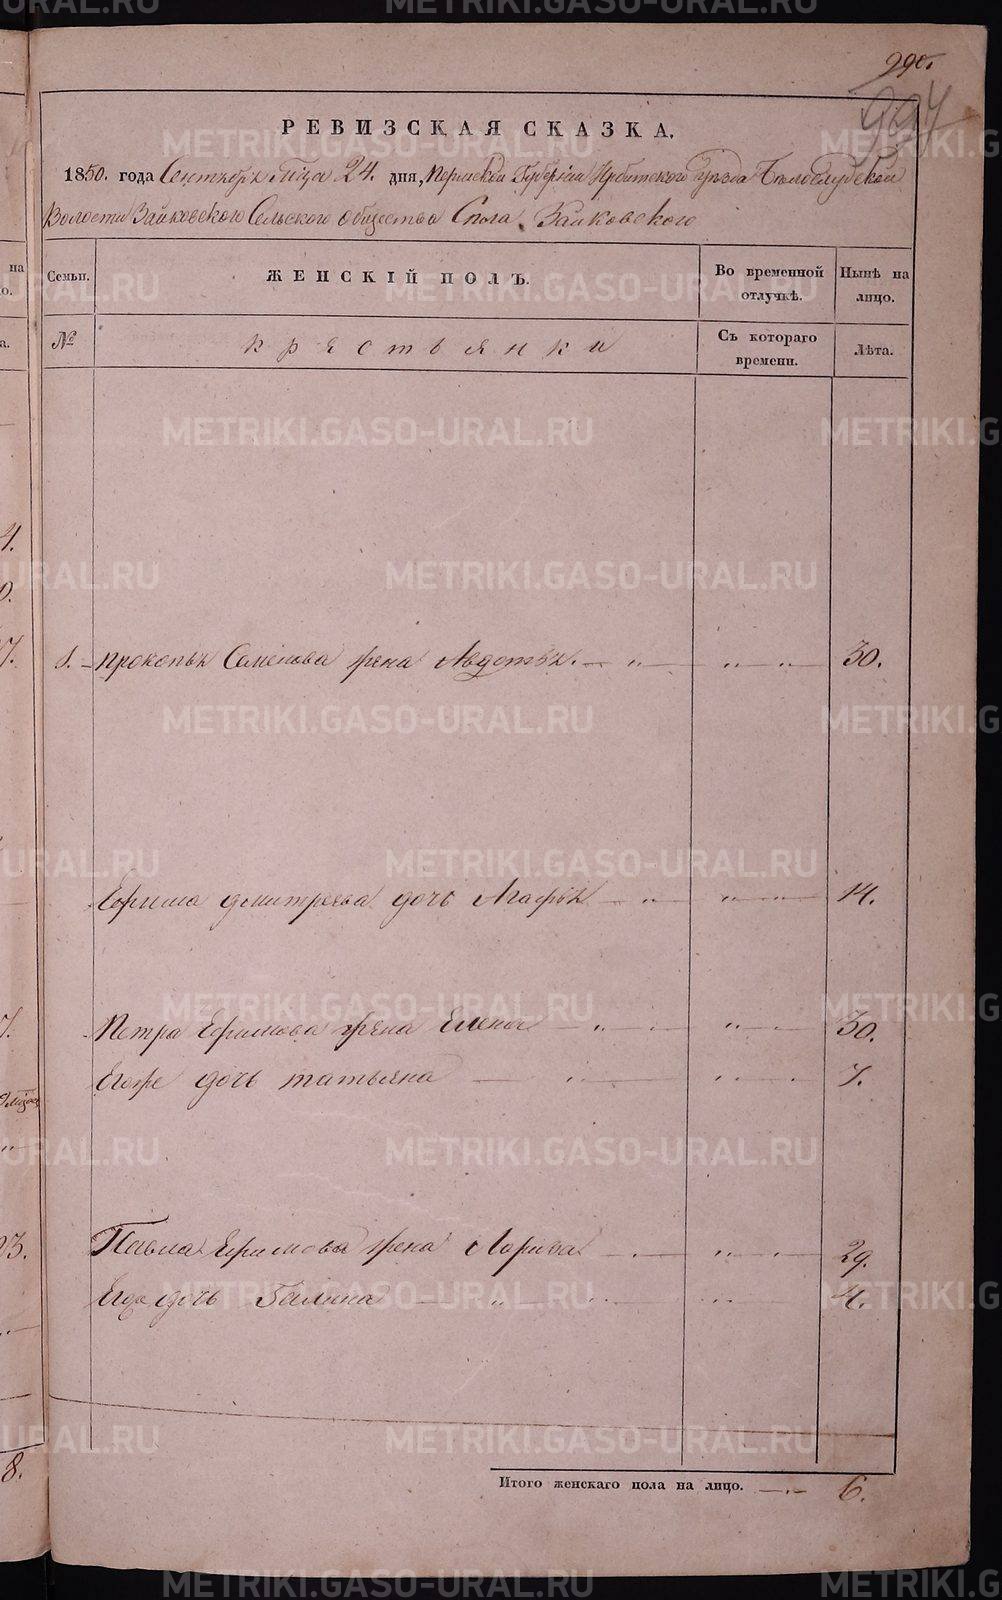 990.
994
РЕВИЗСКАЯ СКАЗКА.
1850. года Сентября 24. дня, Пермской Губернiи Ирбитского Уезда Белослудской
Волости Зайковского Сельского общества Села Зайковского
Семьи. ЖЕНСКІЙ ПОЛЪ. Во временной отлучкѣ. Нынѣ на лицо.
№ крестьянки Съ котораго времени. Лѣта.
8. Прокопья Семенова жена Авдотья. 30.
Ефима Дмитрева дочь Агафья 14.
Петра Ефимова жена Елена 30.
Егоже дочь татьяна 7.
Павла Ефимова жена Лариса 29.
Его дочь Галина 4.
Итого женскаго пола на лицо. 6.
METRIKI.GASO-URAL.RU